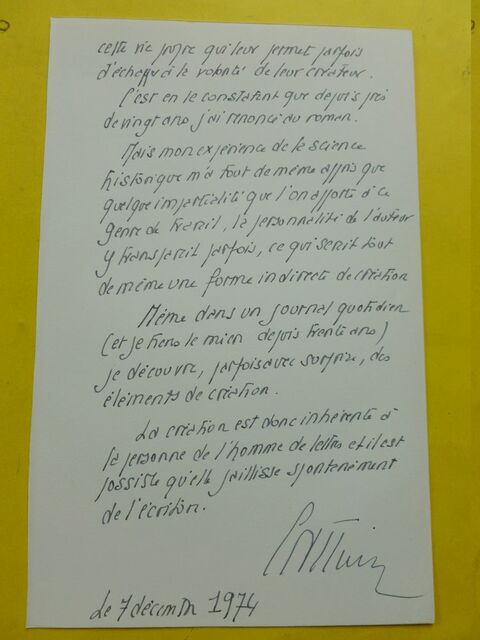 cette vie propre qui leur permet parfois
d'échapper à la volonté de leur créateur.
C'est en le constatant que depuis près
de vingt ans, j'ai renoncé au roman.
Mais mon expérience de la science
historique m'a tout de même appris que
quelque impartialité que l'on apporte à ce
genre de travail, la personnalité de l'auteur
y transparaît parfois, ce qui serait tout
de même une forme indirecte de création
Même dans un journal quotidien
(et je tiens le mien depuis trente ans)
je découvre, parfois avec surprise, des
éléments de création.
La création est donc inhérente à
la personne de l'homme de lettres et il est
possible qu'elle jaillisse spontanément
de l'écriture.
Le 7 décembre 1974